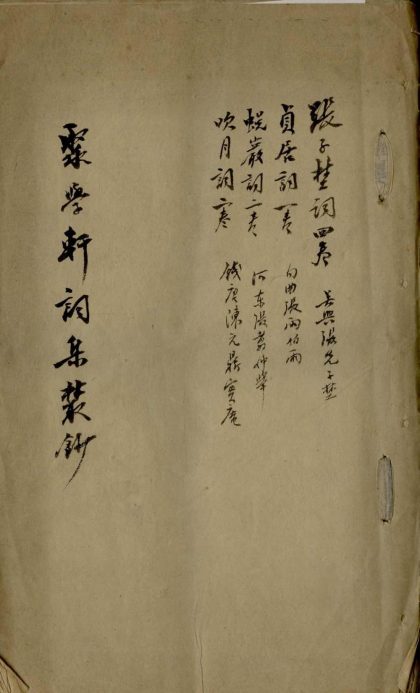 張子埜詞四卷 吳興張先子埜
貞居詞一卷 句曲張雨伯雨
蛻巖詞二卷 河東張翥仲舉
吹月詞二卷 錢唐陳元鼎實庵
聚學軒詞集叢鈔